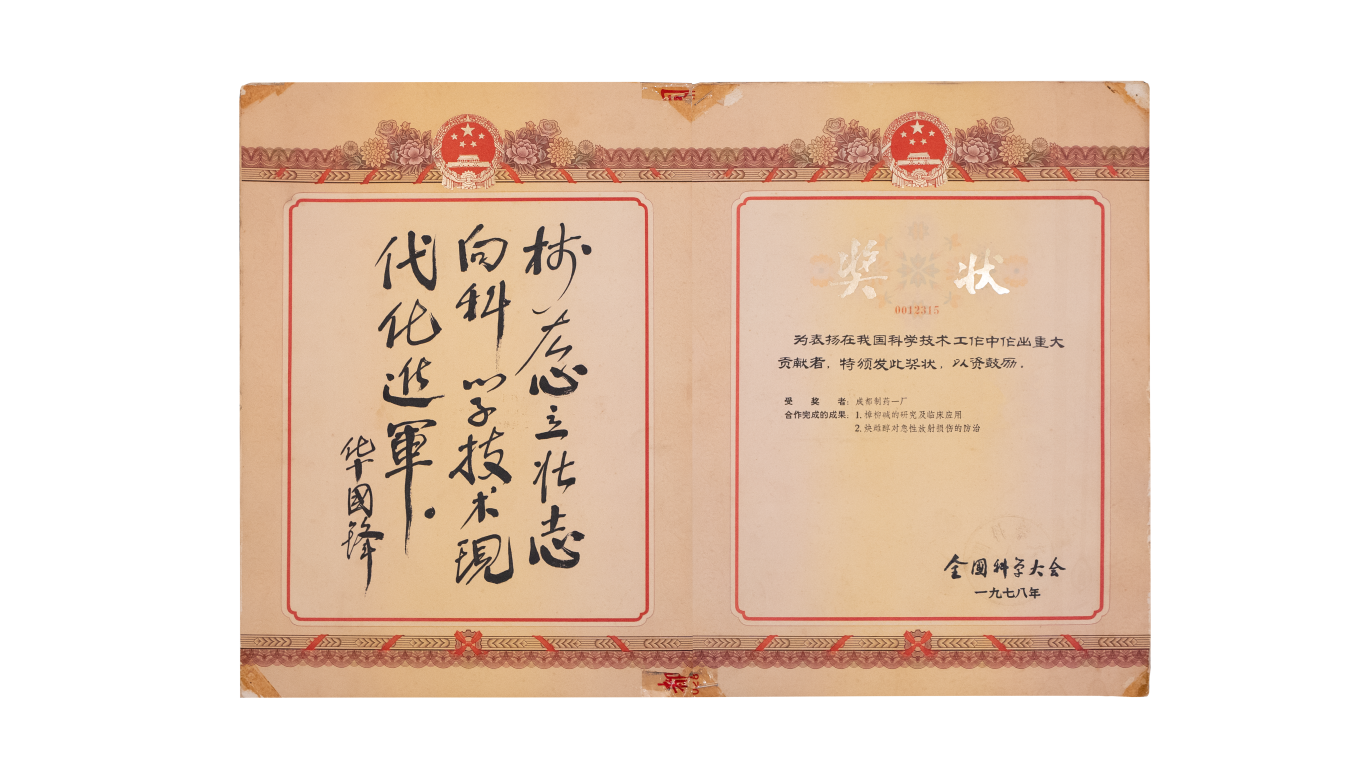 树雄心立壮志
向科学技术現
代化進軍。
华國锋
奖状
0012315
为表扬在我国科学技术工作中作出重大
贡献者，特颁发此奖状，以资鼓励。
受奖者：成都制药一厂
合作完成的成果：1.樟柳碱的研究及临床应用
2.炔雌醇对急性放射损伤的防治
全國科学大会
一九七八年